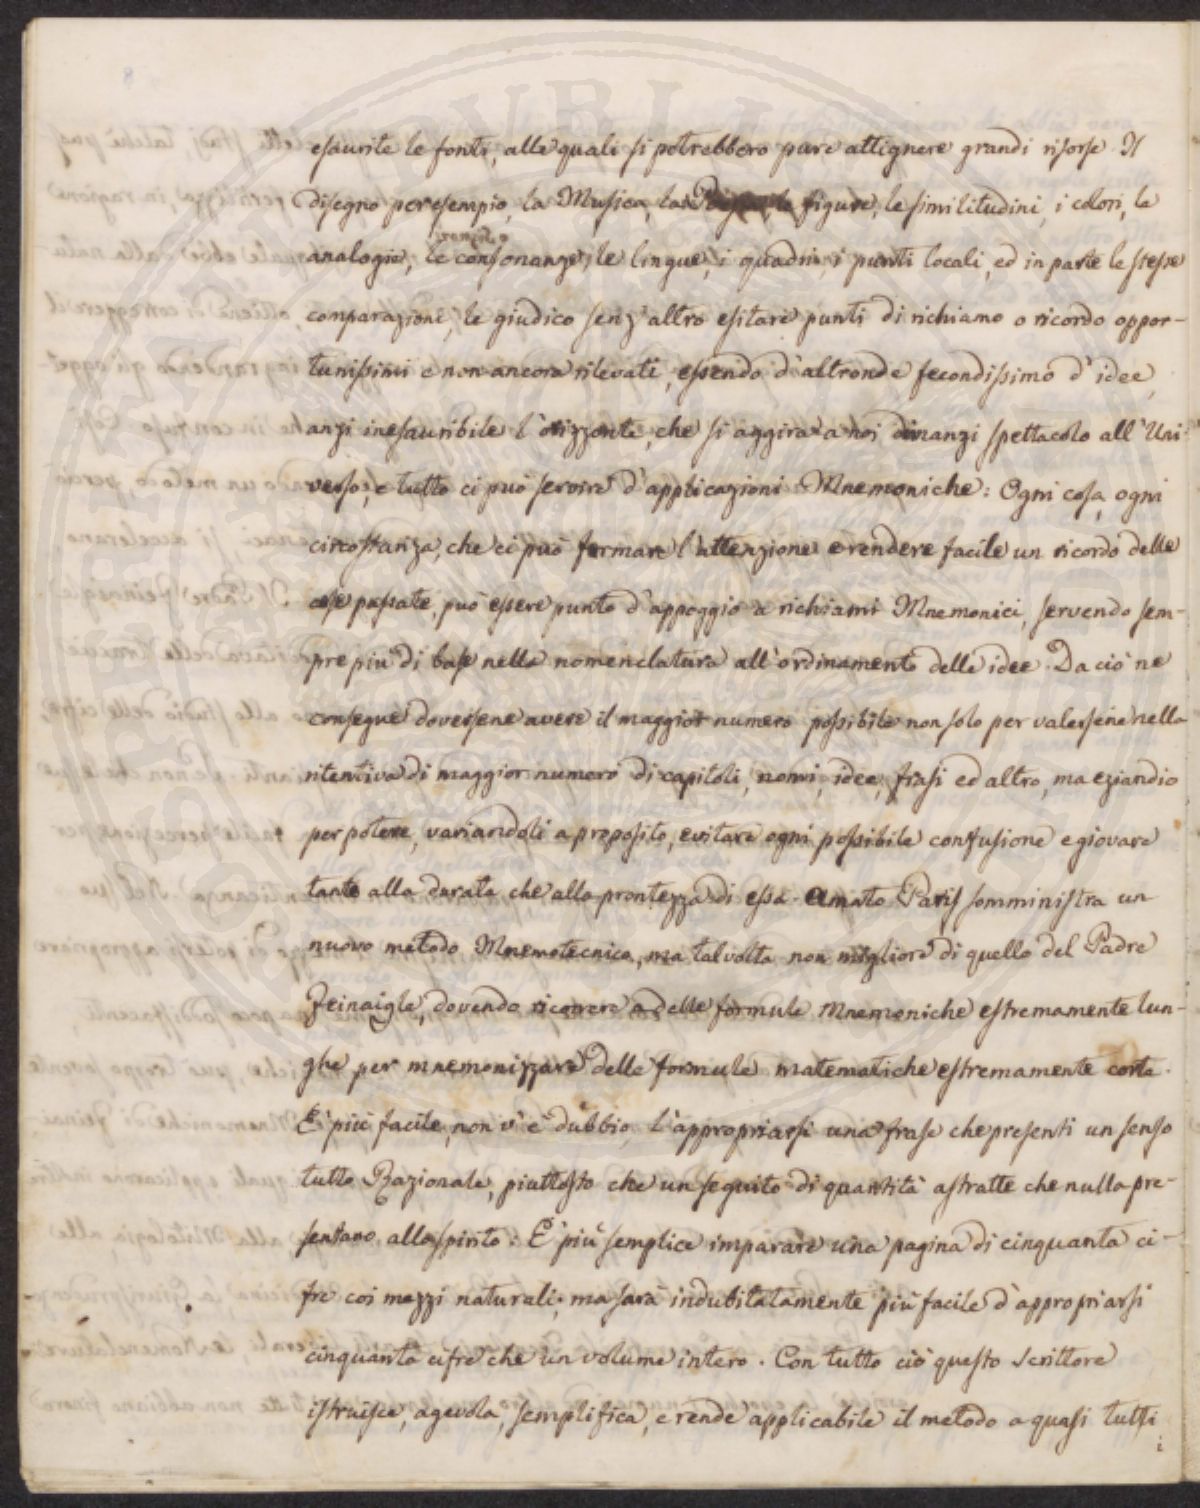 esaurite le fonti, alle quali si potrebbero pure attignere grandi risorse. Il
disegno per esempio, la Musica, le figure, le similitudini, i colori, le
analogie, le consonanze, le lingue, i quadri, i punti locali, ed in parte le stesse
comparazioni, le giudico senz'altro esitare punti di richiamo o ricordo oppor-
tunissimi e non ancora rilevati, essendo d'altronde fecondissimo d'idee,
anzi inesauribile l'orizzonte, che si aggira a noi dinanzi spettacolo all'Uni-
verso; e tutto ci può servire d'applicazioni Mnemoniche: Ogni cosa, ogni
circostanza, che ci può fermare l'attenzione e rendere facile un ricordo delle
cose passate, può essere punto d'appoggio a richiami Mnemonici, servendo sem-
pre più di base nella nomenclatura all'ordinamento delle idee. Da ciò ne
consegue doversene avere il maggior numero possibile non solo per valersene nella
ritentiva di maggior numero di capitoli, nomi, idee, frasi ed altro, ma eziandio
per potere, variandoli a proposito, evitare ogni possibile confusione e giovare
tanto alla durata, che alla prontezza di essa. Amato Paris somministra un
nuovo metodo Mnemotecnico, ma talvolta non migliore di quello del Padre
Feinaigle, dovendo ricorrere a delle formule Mnemoniche estremamente lun-
ghe per mnemonizzare delle formule matematiche estremamente corte.
È più facile, non v'è dubbio, l'appropriarsi una frase che presenti un senso
tutto Razionale, piuttosto che un seguito di quantità astratte che nulla pre-
sentano allo spirito: È più semplice imparare una pagina di cinquanta ci-
fre coi mezzi naturali; ma sarà indubitatamente più facile d'appropriarsi
cinquanta cifre che un volume intero. Con tutto ciò questo Scrittore
istruisce, agevola, semplifica, e rende applicabile il metodo a quasi tutti
i